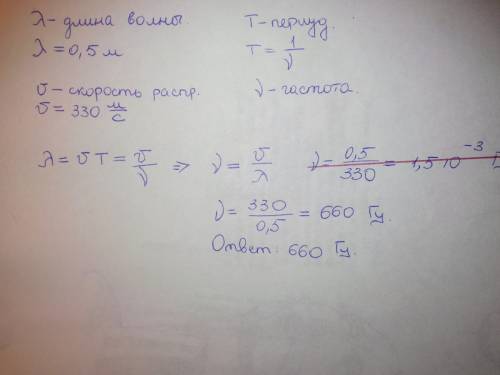 λ - длина волны.
λ = 0,5 м
T - период.
T = 1/ν
υ - скорость распр.
υ = 330 м/с
ν - частота.
λ = υ T = υ/ν => ν = υ/λ
ν = 0,5/330 = 1,5·10⁻³
ν = 330/0,5 = 660 Гц.
Ответ: 660 Гц.